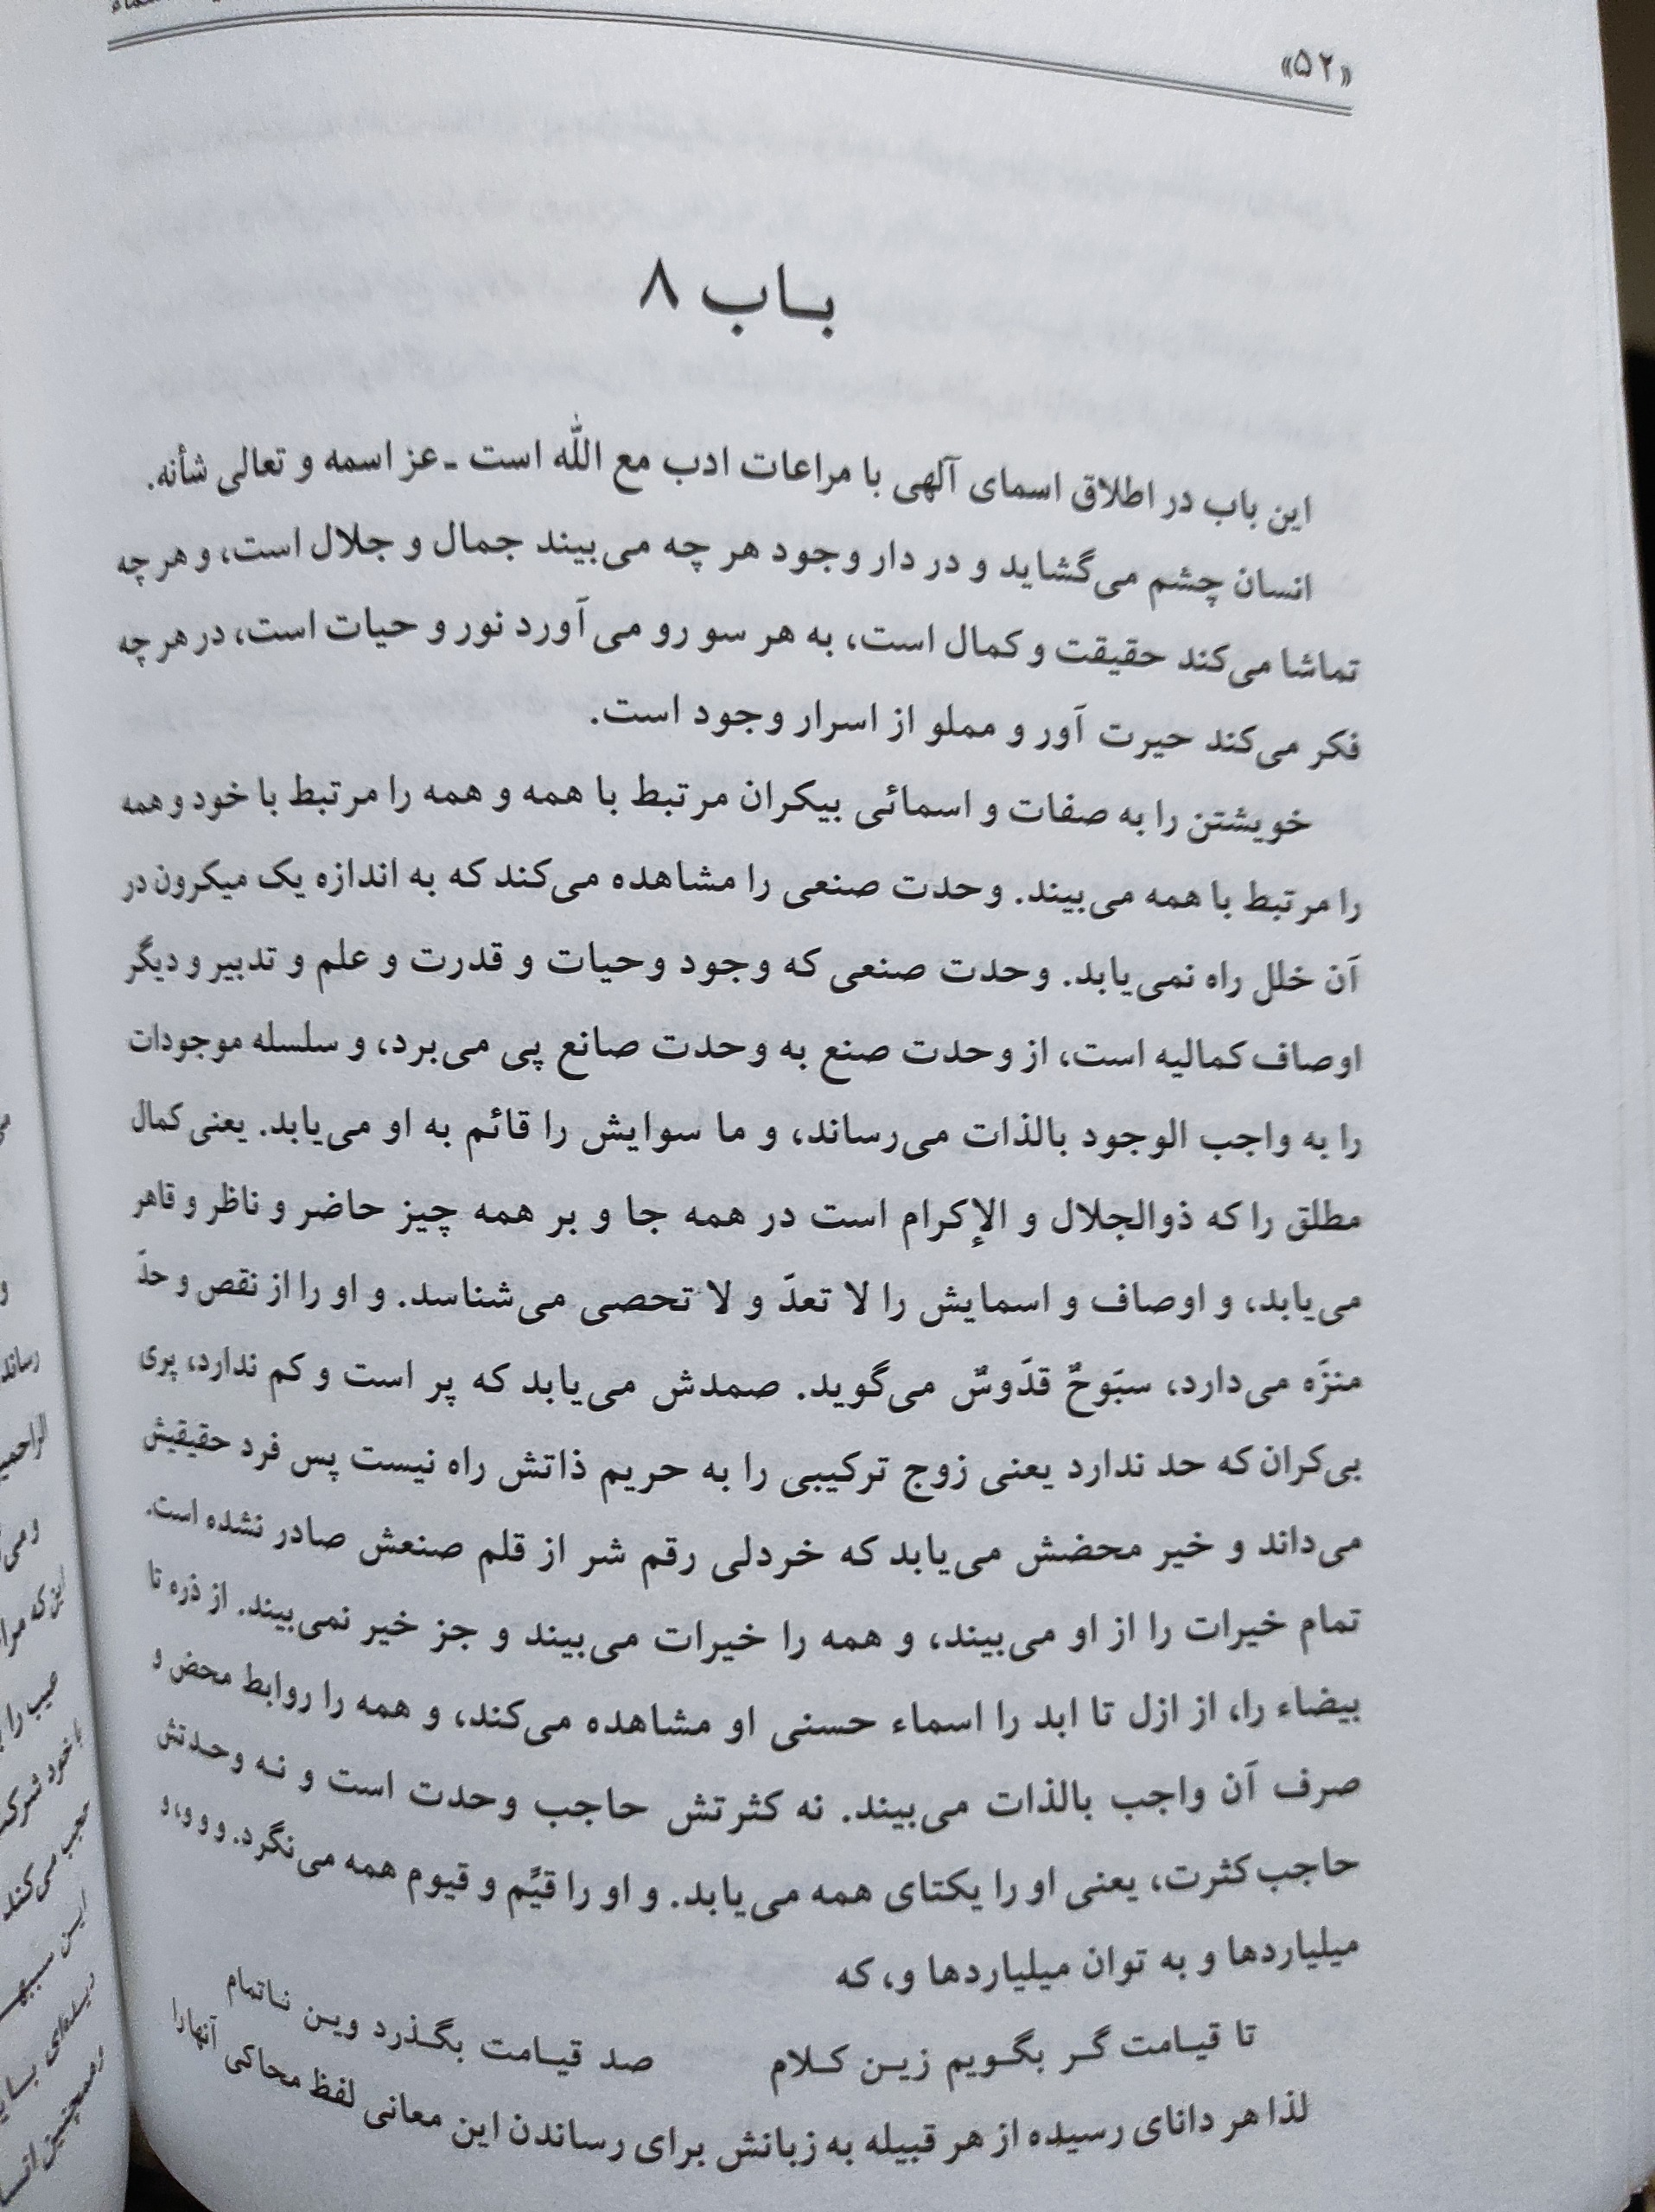 «۵۲»
بـاب ۸
این باب در اطلاق اسمای آلهی با مراعات ادب مع الله است ـ عز اسمه و تعالی شأنه.
انسان چشم می‌گشاید و در دار وجود هر چه می‌بیند جمال و جلال است، و هر چه
تماشا می‌کند حقیقت و کمال است، به هر سو رو می‌آورد نور و حیات است، در هر چه
فکر می‌کند حیرت آور و مملو از اسرار وجود است.
خویشتن را به صفات و اسمائی بیکران مرتبط با همه و همه را مرتبط با خود و همه
را مرتبط با همه می‌بیند. وحدت صنعی را مشاهده می‌کند که به اندازه یک میکرون در
آن خلل راه نمی‌یابد. وحدت صنعی که وجود و حیات و قدرت و علم و تدبیر و دیگر
اوصاف کمالیه است، از وحدت صنع به وحدت صانع پی می‌برد، و سلسله موجودات
را به واجب الوجود بالذات می‌رساند، و ما سوایش را قائم به او می‌یابد. یعنی کمال
مطلق را که ذوالجلال و الإکرام است در همه جا و بر همه چیز حاضر و ناظر و قاهر
می‌یابد، و اوصاف و اسمایش را لا تعدّ و لا تحصی می‌شناسد. و او را از نقص و حدّ
منزّه می‌دارد، سبّوحٌ قدّوسٌ می‌گوید. صمدش می‌یابد که پر است و کم ندارد، پری
بی‌کران که حد ندارد یعنی زوج ترکیبی را به حریم ذاتش راه نیست پس فرد حقیقیش
می‌داند و خیر محضش می‌یابد که خردلی رقم شر از قلم صنعش صادر نشده است.
تمام خیرات را از او می‌بیند، و همه را خیرات می‌بیند و جز خیر نمی‌بیند. از ذره تا
بیضاء را، از ازل تا ابد را اسماء حسنی او مشاهده می‌کند، و همه را روابط محض و
صرف آن واجب بالذات می‌بیند. نه کثرتش حاجب وحدت است و نـه وحـدتش
حاجب کثرت، یعنی او را یکتای همه می‌یابد. و او را قیّم و قیوم همه می‌نگرد. و و و، و
میلیاردها و به توان میلیاردها و، که
تا قیـامت گـر بگـویم زیـن کـلام صد قیـامت بگـذرد ویـن نـاتمام
لذا هر دانای رسیده از هر قبیله به زبانش برای رساندن این معانی لفظ محاکی آنها را
رساند
الراحمین
و می
این که مرا
حجب می‌کند
ایـن